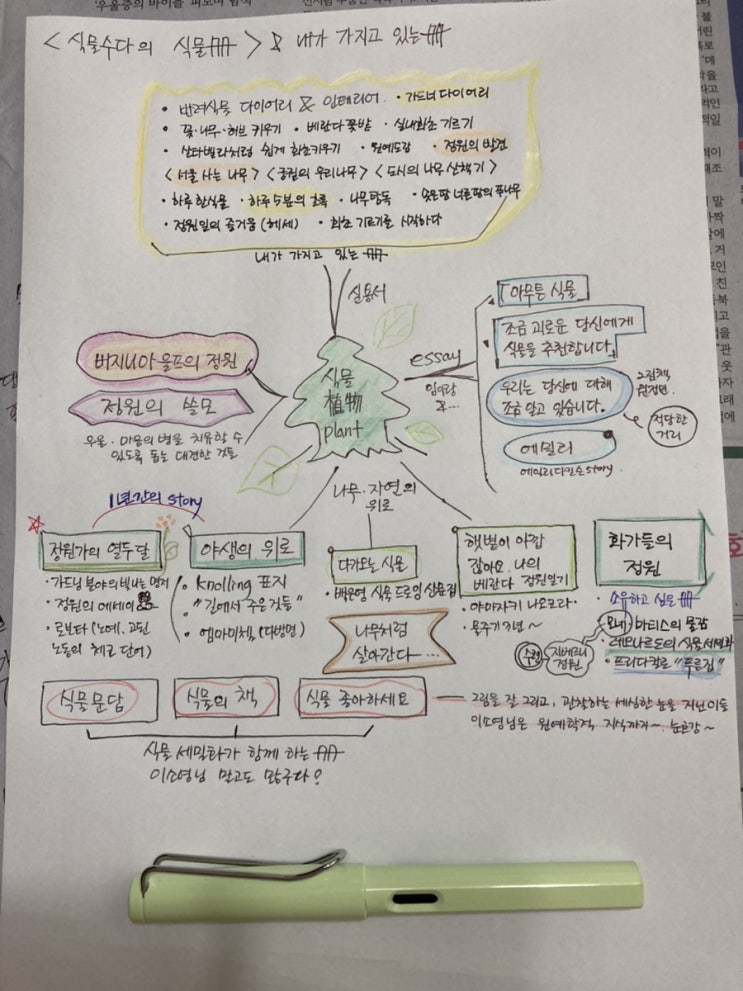 < 식물수다의 식물책 > & 내가 가지고 있는 책
• 반려식물 다이어리 & 인테리어 • 가드너 다이어리
• 꽃·나무·허브 키우기 • 베란다 꽃밭 • 실내화초 기르기
• 산타벨라처럼 쉽게 화초키우기 • 원예도감 • 정원의 발견
< 서울 사는 나무 > < 궁궐의 우리나무 > < 도시의 나무 산책기 >
• 하루 한 식물 • 하루 5분의 초록 • 나무탐독 • 손은땅 너른땅의 푸나무
• 정원일의 즐거움 (헤세) • 화초 기르기를 시작하다
내가 가지고 있는
실용서
식물
植物
plant
버지니아 울프의 정원
정원의 쓸모
우울·마음의 병을 치유할 수
있도록 돕는 대견한 것들
essay
아무튼 식물
조금 괴로운 당신에게
식물을 추천합니다
우리는 당신에 대해
조금 알고 있습니다.
그림책
적당한
거리
에밀리
에밀리 디킨슨 story.
나무·자연의
위로
1년간의 story
정원가의 열두달
• 가드닝 분야의 빛나는 명저
• 정원의 에세이
• 로보타 (노예, 고된
노동의 체코 단어)
야생의 위로
• Knolling 표지
• "길에서 주운 것들"
• 엠마 미첼 (다방면)
다가오는 식물
• 백은영 식목 드로잉 산문집
나무처럼
살아간다...
햇볕이 아깝
잖아요. 나의
베란다 정원일기
• 야마자키 나오코라.
• 물주기 3년~
화가들의
정원
• 소유하고 싶은
• 모네 / 마티스의 물감
수련
지베르니
정원
• 레오나르도의 식물세계화
• 프리다칼로 "푸른집"
식물문답
식물의 책
식물 좋아하세요
그림을 잘 그리고, 관찰하는 세심한 눈을 지닌 이들
이소영님은 원예학적 지식까지~
식물 세밀화가 함께 하는
이소영님 말고도 많구나?